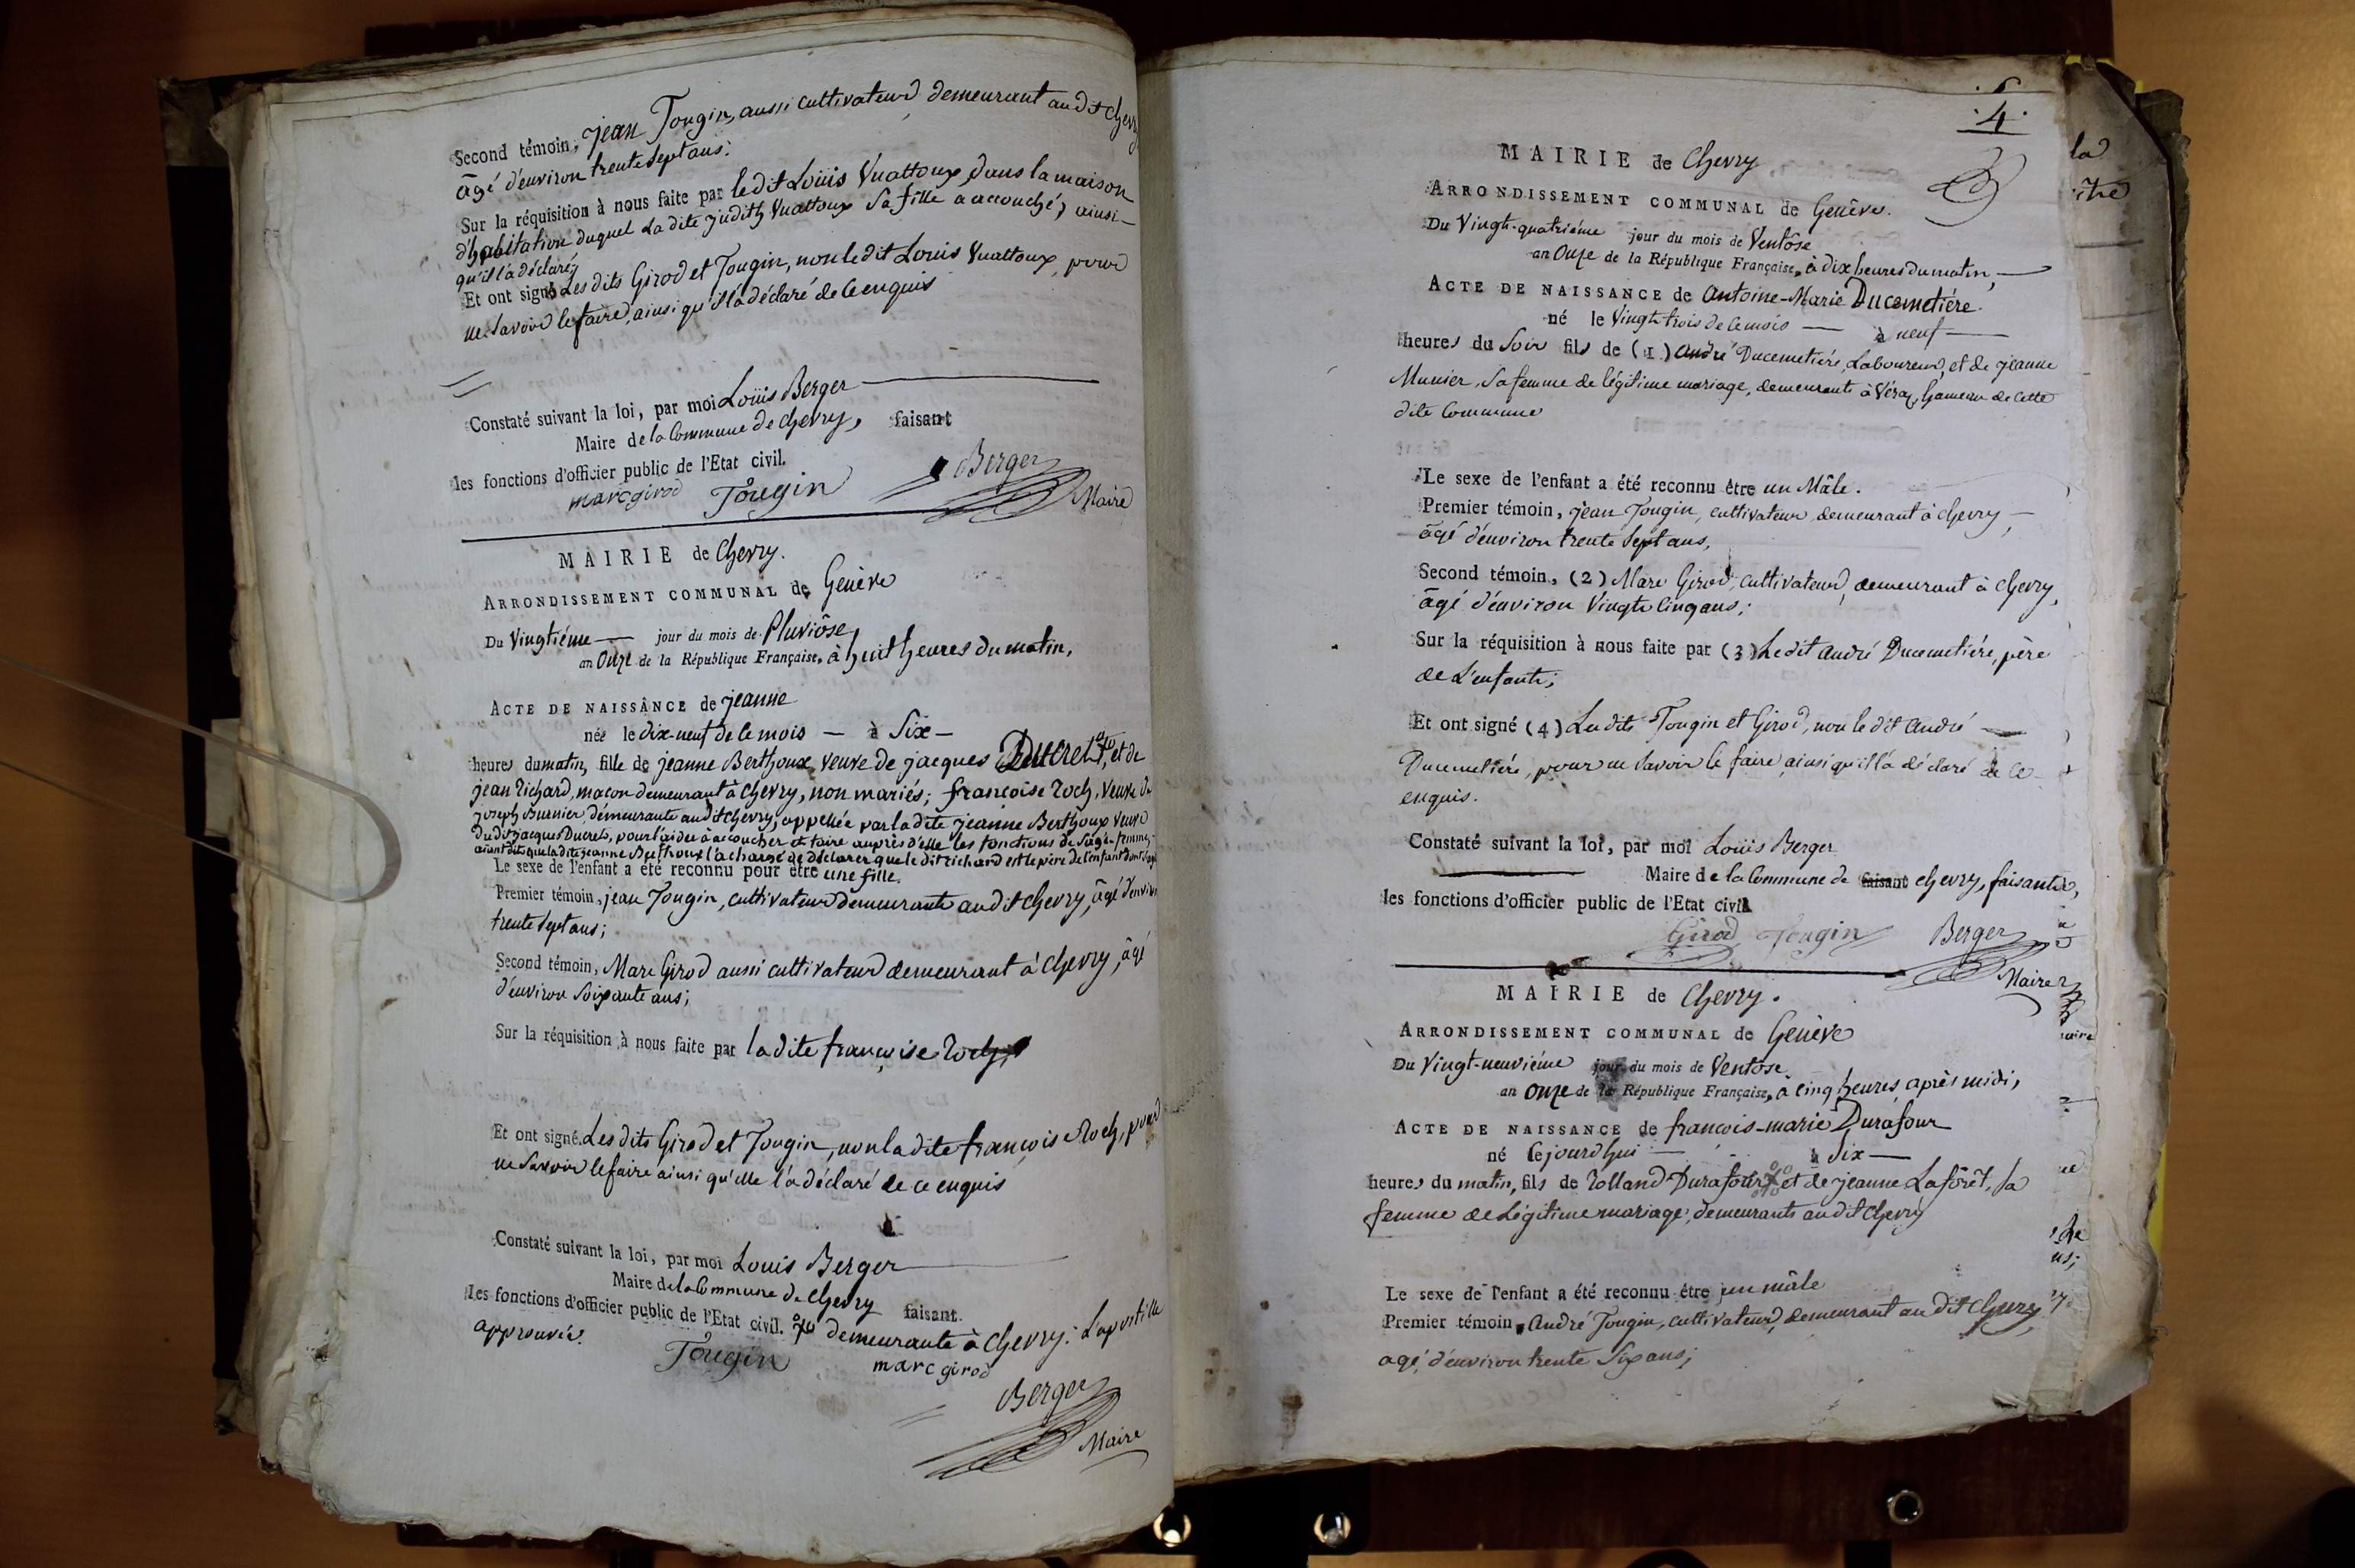 Second témoin, jean Tougin, aussi cultivateur demeurant audit Chevry
âgé d'environ trente Sept ans;
Sur la réquisition à nous faite par le dit Loüis Vuattoux, dans la maison
d'habitation duquel La dite judith Vuattoux Sa fille a accouché, ainsi
qu'il l'a déclaré,
Et ont signé Les dits Girod et Tougin, non le dit Louis Vuattoux, pour
ne Savoir le faire, ainsi qu'il l'a déclaré de ce enquis
Constaté suivant la loi, par moi Loüis Berger
Maire de la Commune de Chevry, faisant
les fonctions d'officier public de l'Etat civil.
marc girod Tougin Berger
Maire
MAIRIE de Chevry.
ARRONDISSEMENT COMMUNAL de Genève
Du Vingtiéme jour du mois de Pluviôse
an Onze de la République Française, à huit heures du matin,
ACTE DE NAISSANCE de jeanne
née le dix-neuf de ce mois — à Six —
heures du matin, fille de jeanne Berthoux, veuve de jacques Ducret, et de
jean Richard, maçon demeurant à Chevry, non mariés; françoise Roch, Veuve de
joseph Burnier, demeurante audit Chevry, appellée par la dite jeanne Berthoux Veuve
du dit jacques Ducret, pour l'aider à accoucher et faire auprès d'elle les fonctions de Sage-femme,
aiant dit que la dite jeanne Berthoux l'a chargé de déclarer que le dit richard est le père de l'enfant dont s'agit
Le sexe de l'enfant a été reconnu pour être une fille.
Premier témoin, jean Tougin, cultivateur demeurante audit Chevry, âgé d'environ
trente Sept ans;
Second témoin, Marc Girod aussi cultivateur demeurant à Chevry, âgé
d'environ Soixante ans;
Sur la réquisition à nous faite par la dite françoise Roch,
Et ont signé. Les dits Girod et Tougin, non la dite françoise Roch, pour
ne Savoir le faire ainsi qu'elle l'a déclaré de ce enquis
Constaté suivant la loi, par moi Louis Berger
Maire de la Commune de Chevry faisant
les fonctions d'officier public de l'Etat civil. demeurante à Chevry: L'apostille
approuvée.
Tougin marc girod
Berger
Maire
4
MAIRIE de Chevry
ARRONDISSEMENT COMMUNAL de Genève.
Du Vingt-quatriéme jour du mois de Ventôse
an Onze de la République Française, à dix heures du matin,
ACTE DE NAISSANCE de Antoine-Marie Ducemetiére.
né le Vingt trois de ce mois — à neuf —
heures du Soir fils de (1) André Ducemetiére, Laboureur, et de jeanne
Munier, Sa femme de légitime mariage, demeurants à Véraz, hameau de cette
dite Commune
Le sexe de l'enfant a été reconnu être un Mâle.
Premier témoin, jean Tougin, cultivateur demeurant à chevry,
âgé d'environ trente Sept ans,
Second témoin, (2) Marc Girod, cultivateur, demeurant à Chevry,
âgé d'environ Vingt Cinq ans;
Sur la réquisition à nous faite par (3) Le dit André Ducemetiére, père
de L'enfant;
Et ont signé (4) Les dits Tougin et Girod, non le dit André
Ducemetiére, pour ne Savoir le faire, ainsi qu'il l'a déclaré de ce
enquis.
Constaté suivant la loi, par moi Loüis Berger
Maire de la Commune de faisant chevry, faisant
les fonctions d'officier public de l'Etat civil
Girod Tougin Berger
Maire
MAIRIE de Chevry.
ARRONDISSEMENT COMMUNAL de Genève
Du Vingt-neuviéme jour du mois de Ventôse.
an Onze de la République Française, à cinq heures après midi,
ACTE DE NAISSANCE de françois-marie Durafour
né cejourd'hui à Six —
heures du matin, fils de Rolland Durafour et de jeanne Laforêt, Sa
femme de Légitime mariage, demeurants audit Chevry
Le sexe de l'enfant a été reconnu être un mâle
Premier témoin, André Tougin, cultivateur, demeurant audit Chevry,
agé d'environ trente Six ans;